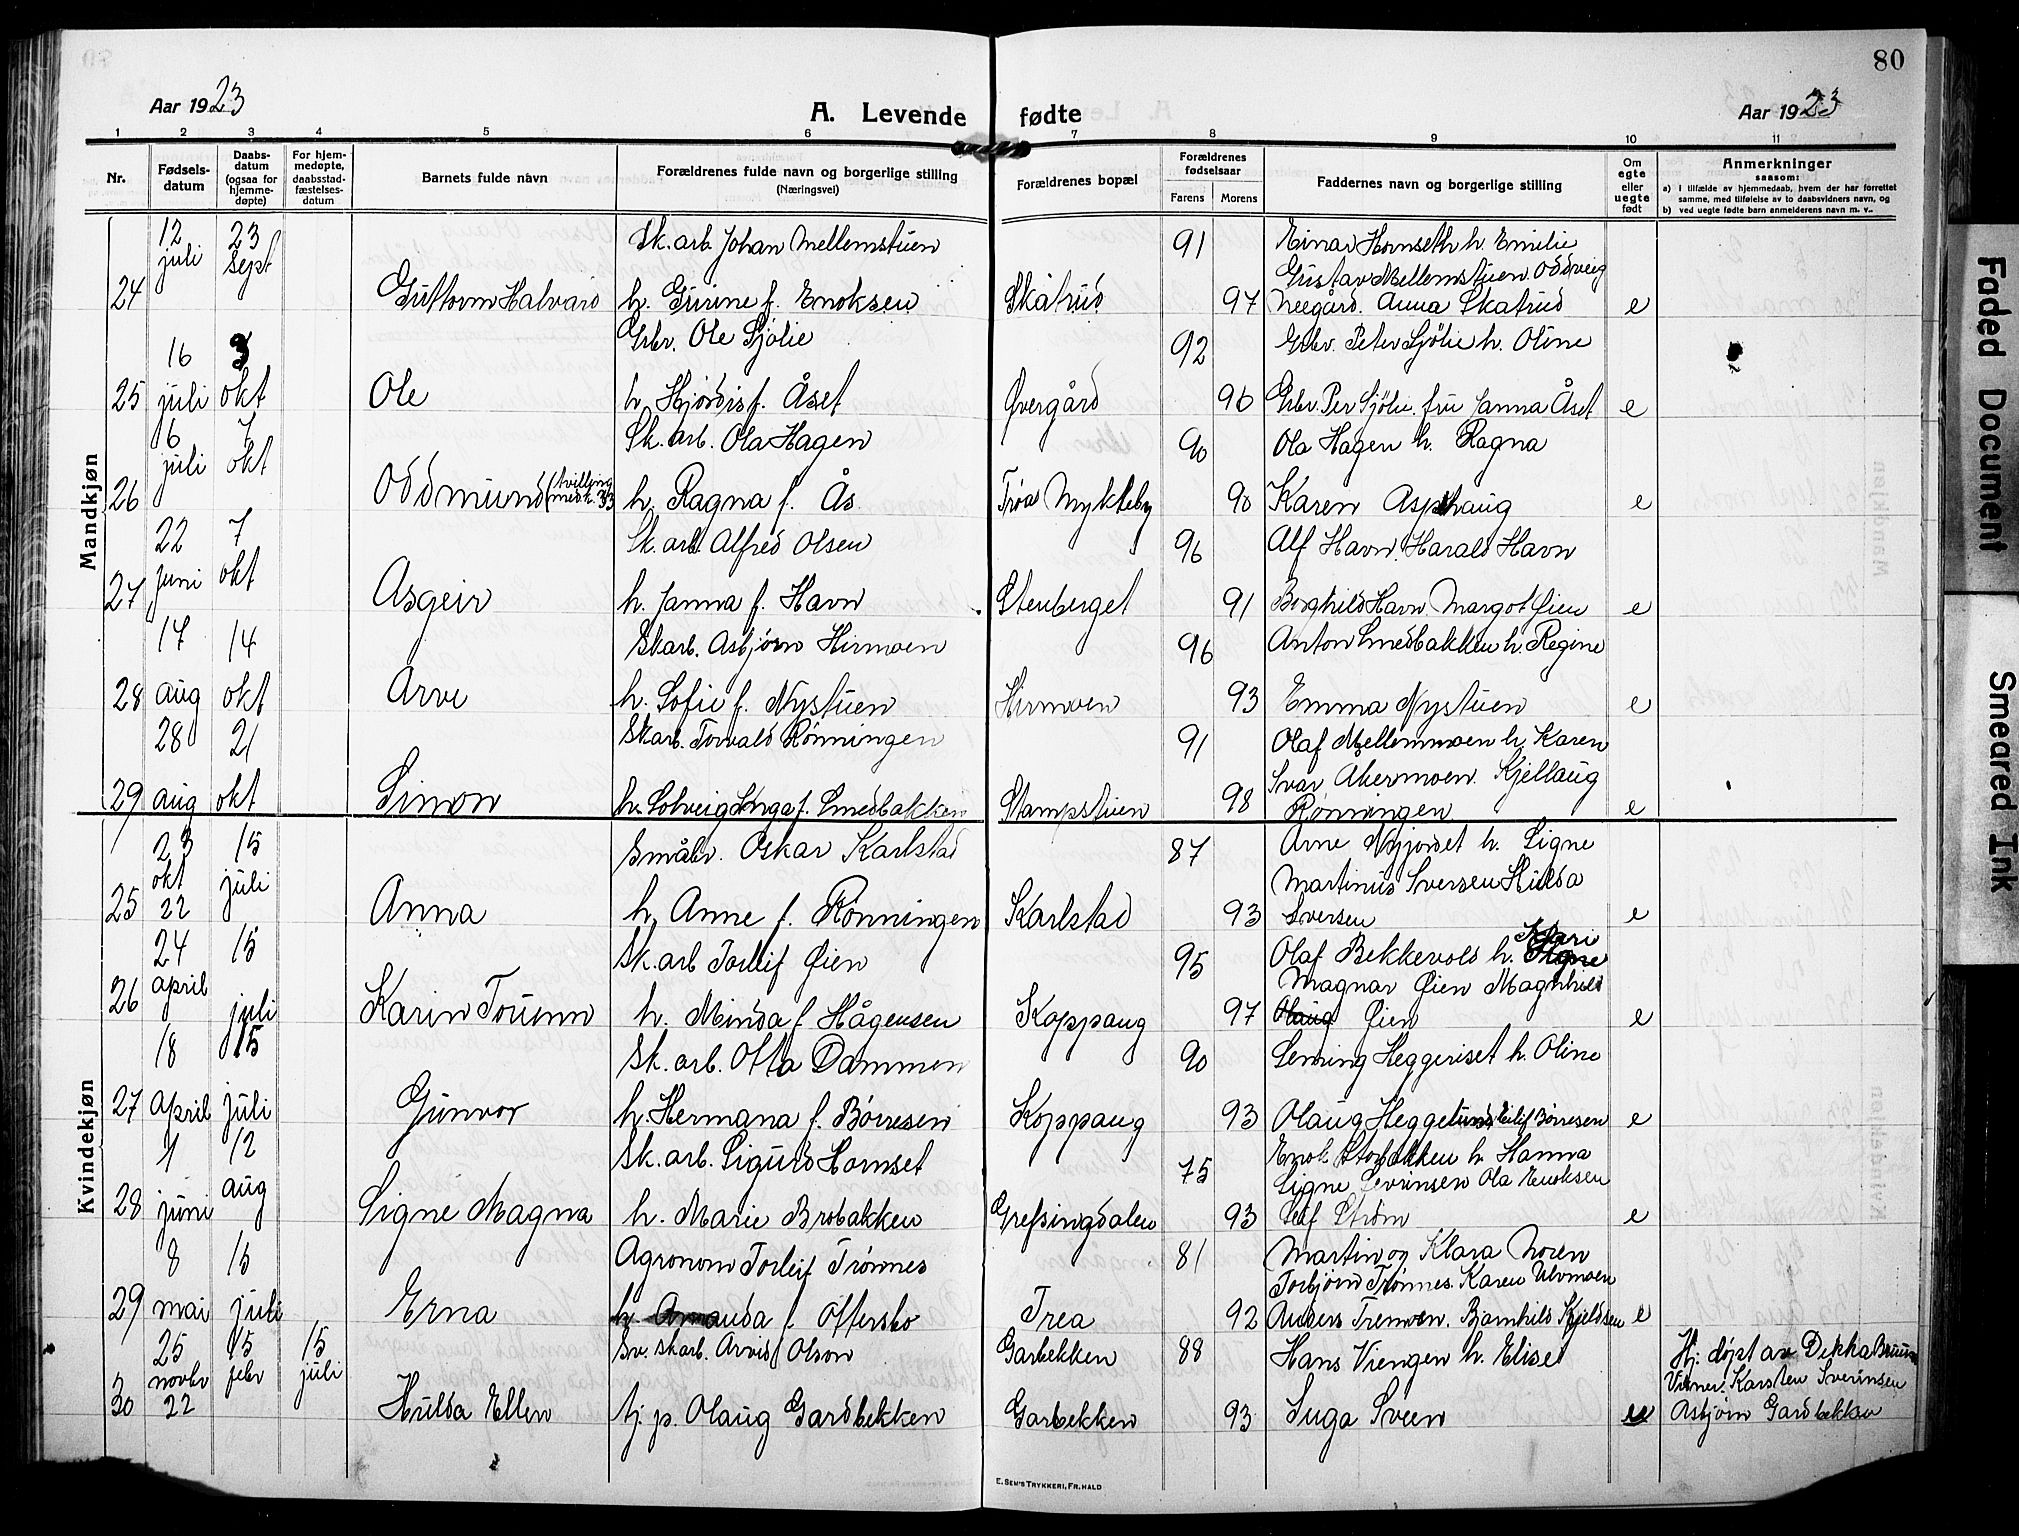 80
Aar 1923
A. Levende fødte
Aar 1923
1 2 3 4 5 6 7 8 9 10 11
Nr.
Fødsels-
datum
Daabs-
datum
(ogsaa for
hjemme-
døpte)
For hjem-
medøpte,
daabsstad-
fæstelses-
datum
Barnets fulde navn
Forældrenes fulde navn og borgerlige stilling
(Næringsvei)
Forældrenes bopæl
Forældrenes
fødselsaar
Farens Morens
Faddernes navn og borgerlige stilling
Om
egte
eller
uegte
født
Anmerkninger
saasom:
a) I tilfælde av hjemmedaab, hvem der har forrettet
samme, med tilføielse av to daabsvidners navn, og
b) ved uegte fødte barn anmelderens navn m. v..
Mandkjøn
12 23 Sk. arb. Johan Mellemstuen 91 Einar Hornseth h. Emilie
juli sept Gustav Mellemstuen Oddveig
24 Guttorm Halvard h. Gurine f. Enoksen Skatrud 97 Neegård. Anna Skatrud e
16 3 Grbr. Ole Sjølie 92 Grbr. Peter Sjølie h. Oline
25 juli okt Ole h. Hjørdis f. Åset Øvergård 96 Grbr. Per Sjølie. fru Janna Åset e
6 7 Sk. arb. Ola Hagen 90 Ola Hagen h. Ragna
juli okt
26 Oddmund (tvilling med k. 33 h. Ragna f. Ås Trøa Mykleby 90 Karen Asphaug e
22 7 Sk. arb. Alfred Olsen 96 Alf Havn. Harald Havn
27 juni okt Asgeir h. Janna f. Havn Stenberget 91 Borghild Havn Margot Øien e
17 14 Skarb. Asbjørn Hirmoen 96 Anton Smedbakken h. Regine
28 aug okt Arve h. Sofie f. Nystuen Hirmoen 93 Emma Nystuen e
28 21 Skarb. Torvald Rønningen 91 Olaf Mellemmoen h. Karen
Ivar Akermoen. Kjellaug
29 aug okt Simon h. Solveig Inga f. Smedbakken Stampstuen 98 Rønningen e
Kvindekjøn
23 15 Småbr. Oskar Karlstad 87 Arne Nyjordet h. Signe
okt juli Martinus Iversen Hulda
25 22 Anna h. Anne f. Rønningen Karlstad 93 Iversen e
24 15 Sk. arb Torleif Øien 95 Olaf Bekkevold h. Kari
april Magnar Øien Magnhild
26 juli Karin Tourun h. Minda f. Hågensen Koppang 97 Øien e
18 15 Sk. arb. Otta Dammen 90 Heggeriset h. Oline
27 april juli Gunvor h. Hermana f. Børresen Koppang 93 Olaug Heggelund Eilif Børresen e
1 12 Sk. arb. Sigurd Hornset 75 Enok Storbakken h. Hanna
Signe Sevrinsen Ola Enoksen
28 juni aug Signe Magna h. Marie Brobakken Grefsingdalen 93 Leif Strøm e
8 15 Agronom Torleif Trønnes 81 Martin og Klara Noren
Torbjørn Trønnes. Karen Ulvmoen
29 mai juli Erna h. Amanda f. Ottersbo Trea 92 Anders Tremoen. Bjarnhild Kjeldsen e
25 15 15 Sv. skarb. Arvid Olson Garbekken 88 Hans Viengen h. Elise Hj. døpt av Bruun
novbr febr juli Vitner. Karsten Sverinsen
30 22 Hulda Ellen tj. p. Olaug Gardbekken Garbekken 93 Inga Sveen ue Asbjørn Gardbekken
E. SEM'S TRYKKERI, FR.HALD
Faded Document
Smeared Ink